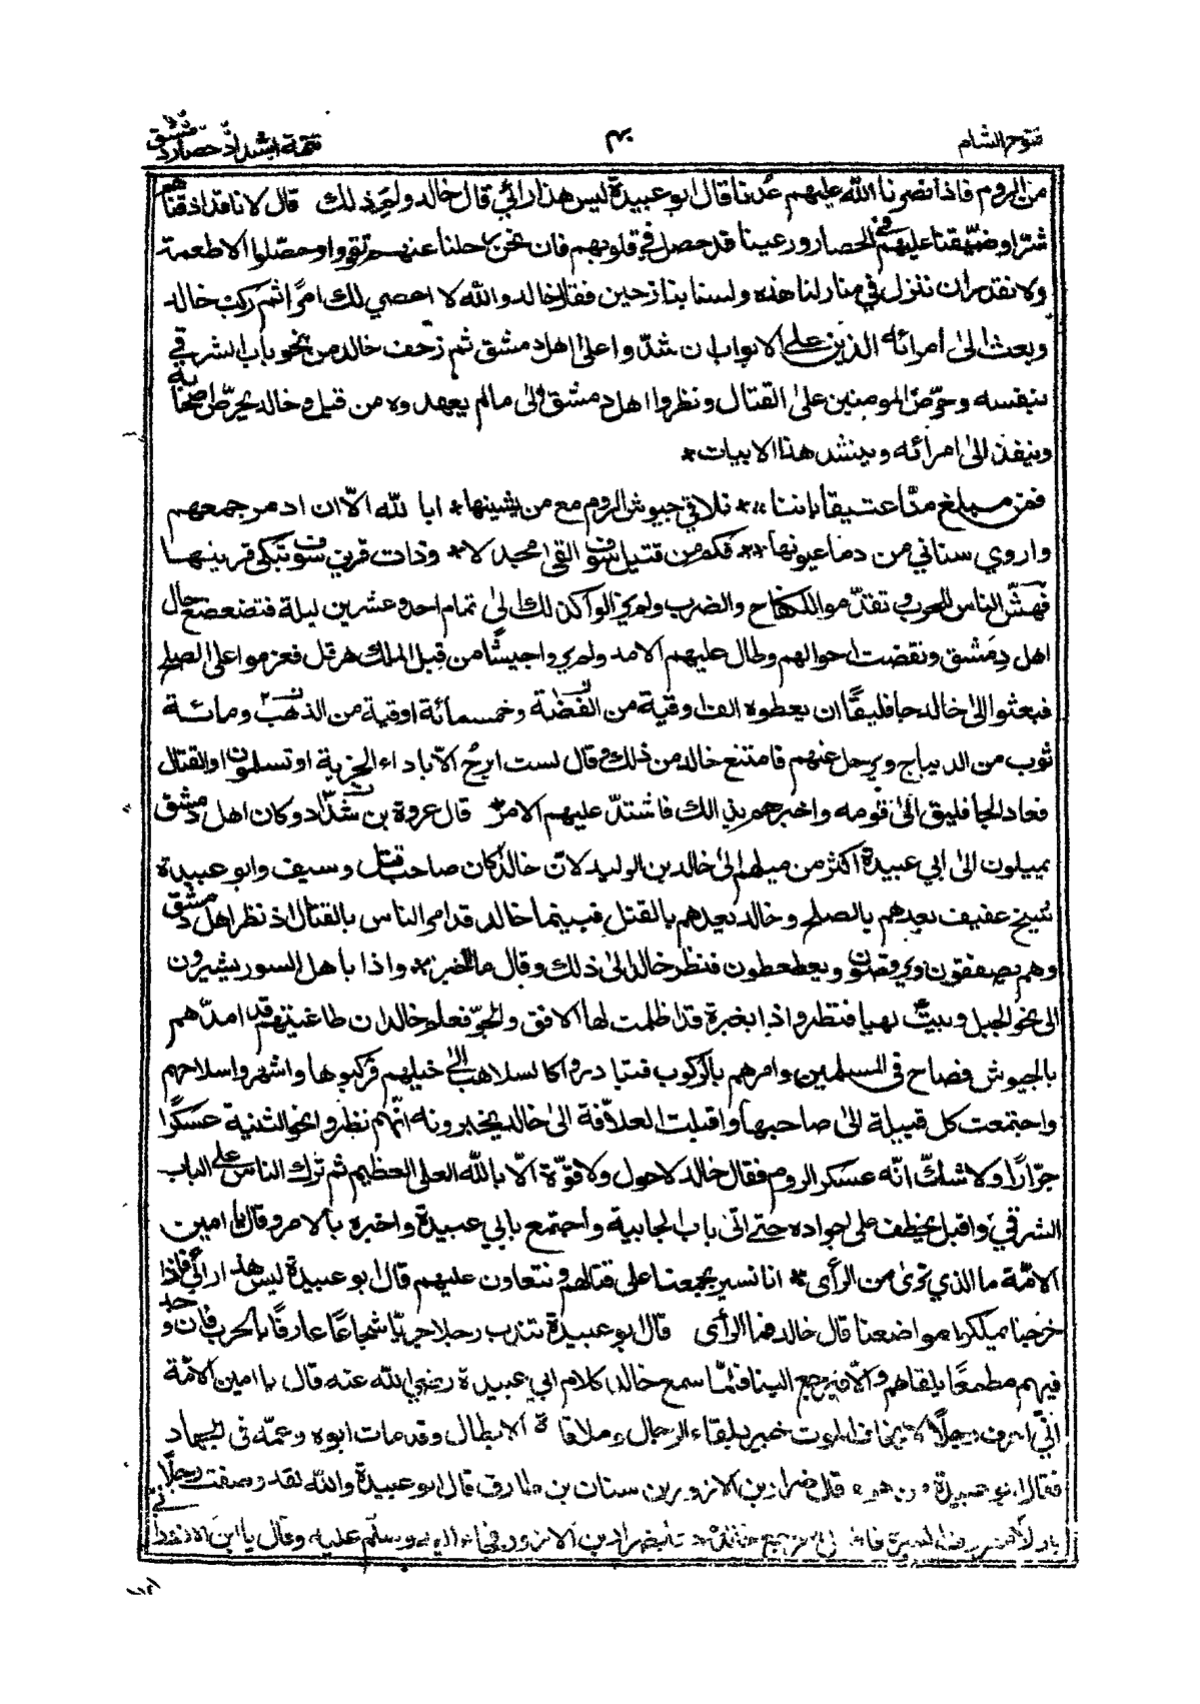 فتوح الشام
۴۰
تتمة اشتداد حصار دمشق
من الروم فاذا نصرنا الله عليهم عدنا قال ابو عبيدة ليس هذا رائي قال خالد ولم ذلك قال لانا قد اذقناهم
شرا وضيّقنا عليهم في الحصار ورعبنا قد حصل في قلوبهم فان نحن رحلنا عنهم تقووا وحصّلوا الاطعمة
ولا نقدر ان ننزل في منازلنا هذه ولسنا بنازحين فقال خالد والله لا اعصي لك امرًا ثم ركب خالد
وبعث الى امرائه الذين على الابواب ان شدّوا على اهل دمشق ثم زحف خالد من نحو باب الشرقي
بنفسه وحرّض المومنين على القتال ونظروا اهل دمشق الى مالم يعهدوه من قبل وخالد يحرّض اصحابه
وينفذ الى امرائه وينشد هذا الابيات*
فمن مبلغ عنّا عتيقا باننا ** نلاقي جيوش الروم مع من يشينها* ابا لله الاّ ان ادمر جمعهم
واروي سناني من دما عيونها** فكم من قتيل سوف القى مجدلا* وذات قرين سوف تبكي قرينهــا
فهشّ الناس للحرب وتقدّموا للكفاح والضرب ولم يزالوا كذلك الى تمام احد وعشرين ليلة فتضعضع حال
اهل دمشق ونقضت احوالهم وطال عليهم الامد ولم يروا جيشًا من قبل الملك هرقل فعزموا على الصلح
فبعثوا الى خالد جاثليقًا ان يعطوه الف اوقية من الفضة وخمسمائة اوقية من الذهب ومائــة
ثوب من الديباج ويرحل عنهم فامتنع خالد من ذلك وقال لست ابرح الّا باداء الجزية او تسلمون او القتال
فعاد الجاثليق الى قومه واخبرهم بذالك فاشتدّ عليهم الامر قال عروة بن شدّاد وكان اهل دمشق
يميلون الى ابي عبيدة اكثر من ميلهم الى خالد بن الوليد لانّ خالد كان صاحب قتل وسيف وابو عبيدة
شيخ عفيف يعدهم بالصلح وخالد يعدهم بالقتل فبينما خالد قدام الناس بالقتال اذ نظر اهل دمشق
وهم يصفقون ويرقصون ويعطعطون فنظر خالد الى ذلك وقال ما الخبر* واذا باهل السور يشيرون
الى نحو الجبل وبيت لهيا فنظروا اذا بغبرة قد اظلمت لها الافق والجوّ فعلم خالد ان طاغيتهم قد امدّهم
بالجيوش فصاح في المسلمين وامرهم بالركوب فتبادروا كالسلاهب الى خيلهم فركبوها واشهروا سلاحهم
واجتمعت كل قبيلة الى صاحبها واقبلت العلافة الى خالد يخبرونه انّهم نظروا نحو الثنية عسكرًا
جرّارًا ولا شك انّه عسكر الروم فقال خالد لا حول ولا قوّة الّا بالله العلي العظيم ثم ترك الناس على الباب
الشرقي واقبل يخطف على جواده حتى اتى باب الجابية واجتمع بابي عبيدة واخبره بالامر وقال يا امين
الامّة ما الذي ترى من الرأى* انا نسير بجمعنا على قتالهم ونتعاون عليهم قال ابو عبيدة ليس هذا رأئي فاذا
خرجنا يملكوا مواضعنا قال خالد فما الرأى قال ابو عبيدة نتدب رجلا جريّا شجاعًا عارفًا بالحرب فان وجد
فيهم مطمعًا يلقاهم والّا فيرجع الينا فلمّا سمع خالد كلام ابي عبيدة رضي الله عنه قال يا امين الامّة
انّي اعرف رجلًا لا يخاف الموت خبير بلقاء الرجال وملاقاة الابطال وقد مات ابوه وعمّه في الجهاد
فقال ابو عبيدة من هو قال ضرار بن الازور بن سنان بن طارق قال ابو عبيدة والله لقد وصفت رجلًا
ضرار بن الازور وسلّم عليه وقال يا ابن الازور انّي